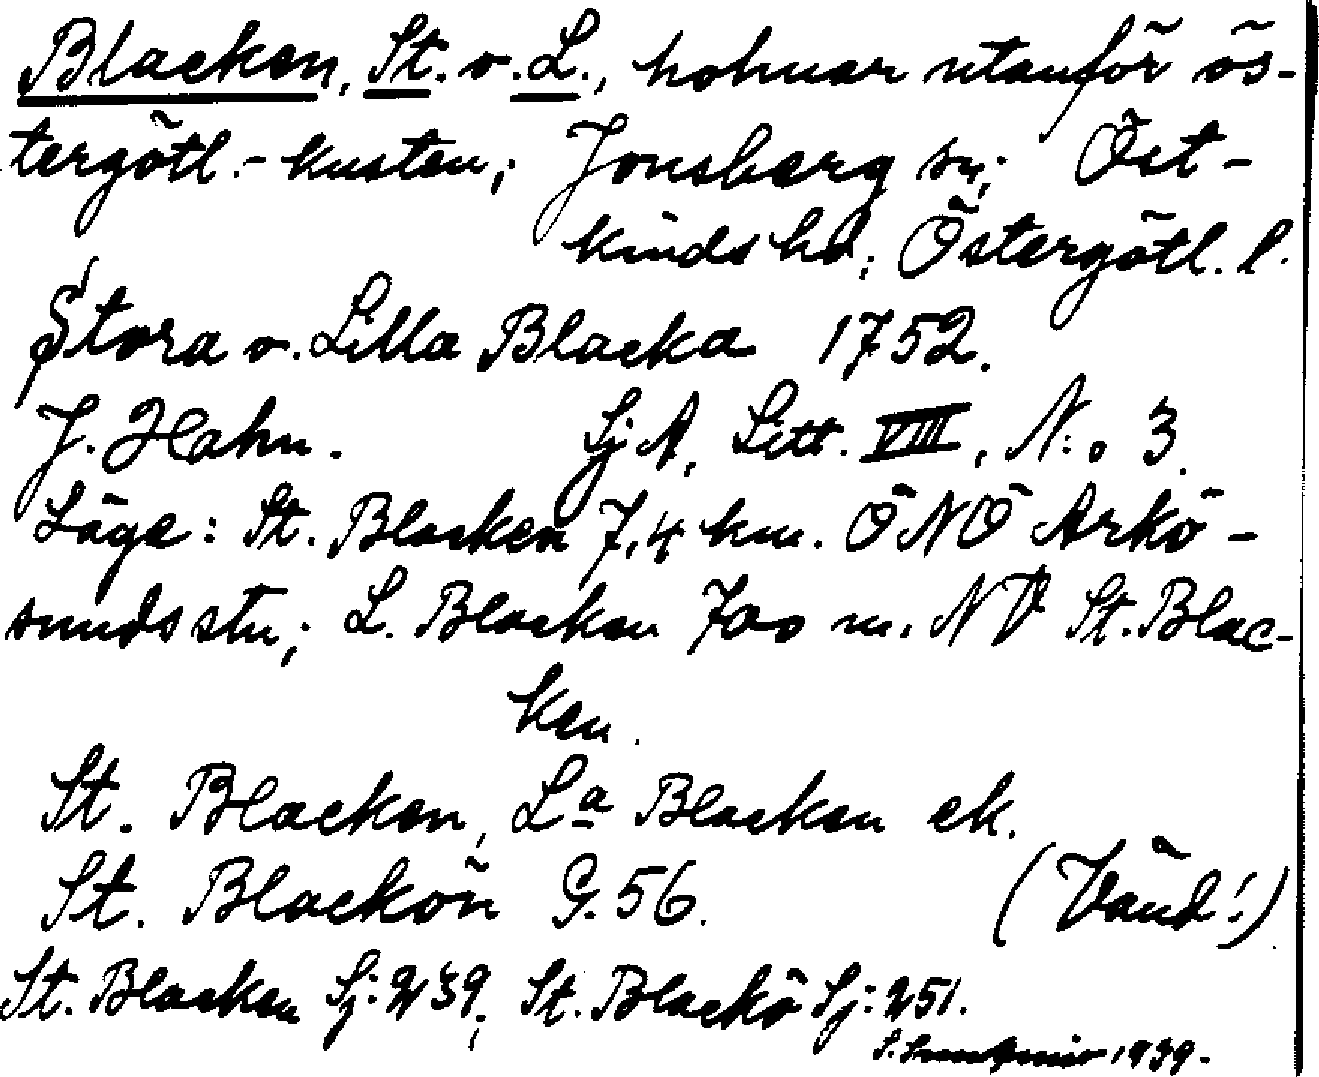 Blacken, St. o. L., holmar utanför ös-
tergötl.-kusten; Jonsberg sn; Öst-
kinds hd; Östergötl. l.
Stora o. Lilla Blacka 1752.
J. Hahn. SjA, Litt. VIII, N:o 3.
Läge: St. Blacken 7,4 km. ÖNÖ Arkö-
sunds stn; L. Blacken 700 m. NV St. Blac-
ken.
St. Blacken, La Blacken ek.
St. Blackön G. 56. (Vänd!)
St. Blacken Sj: 239; St. Blackö Sj: 251.
1939.